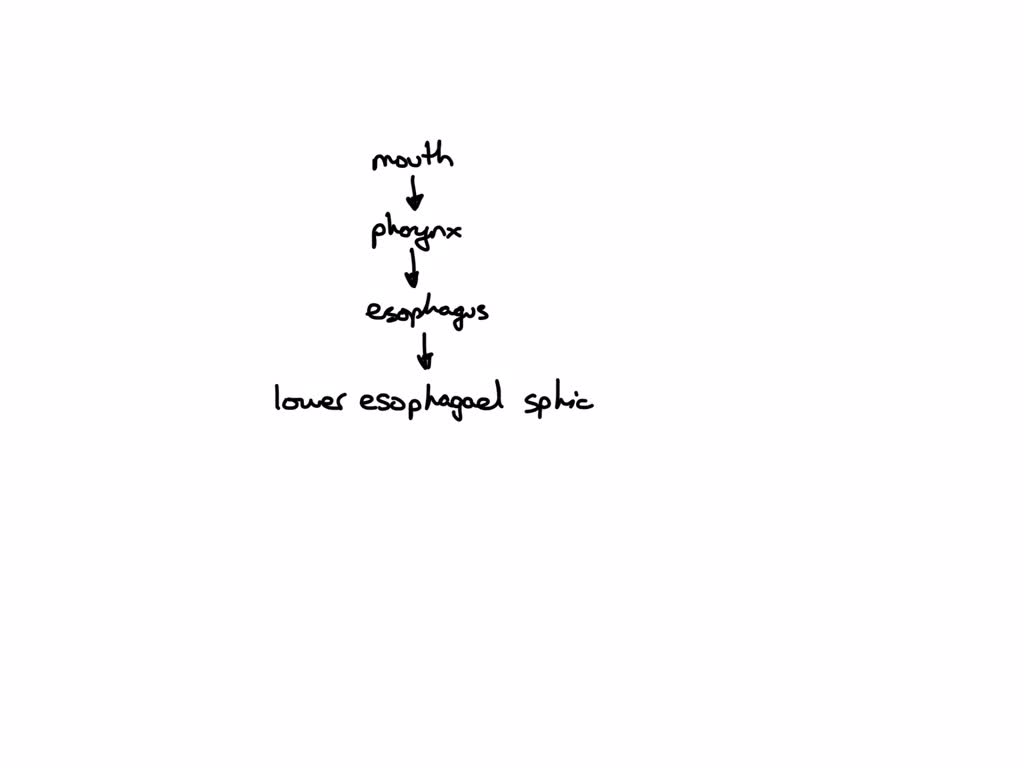 mouth
pharynx
esophagus
lower esophagael sphic